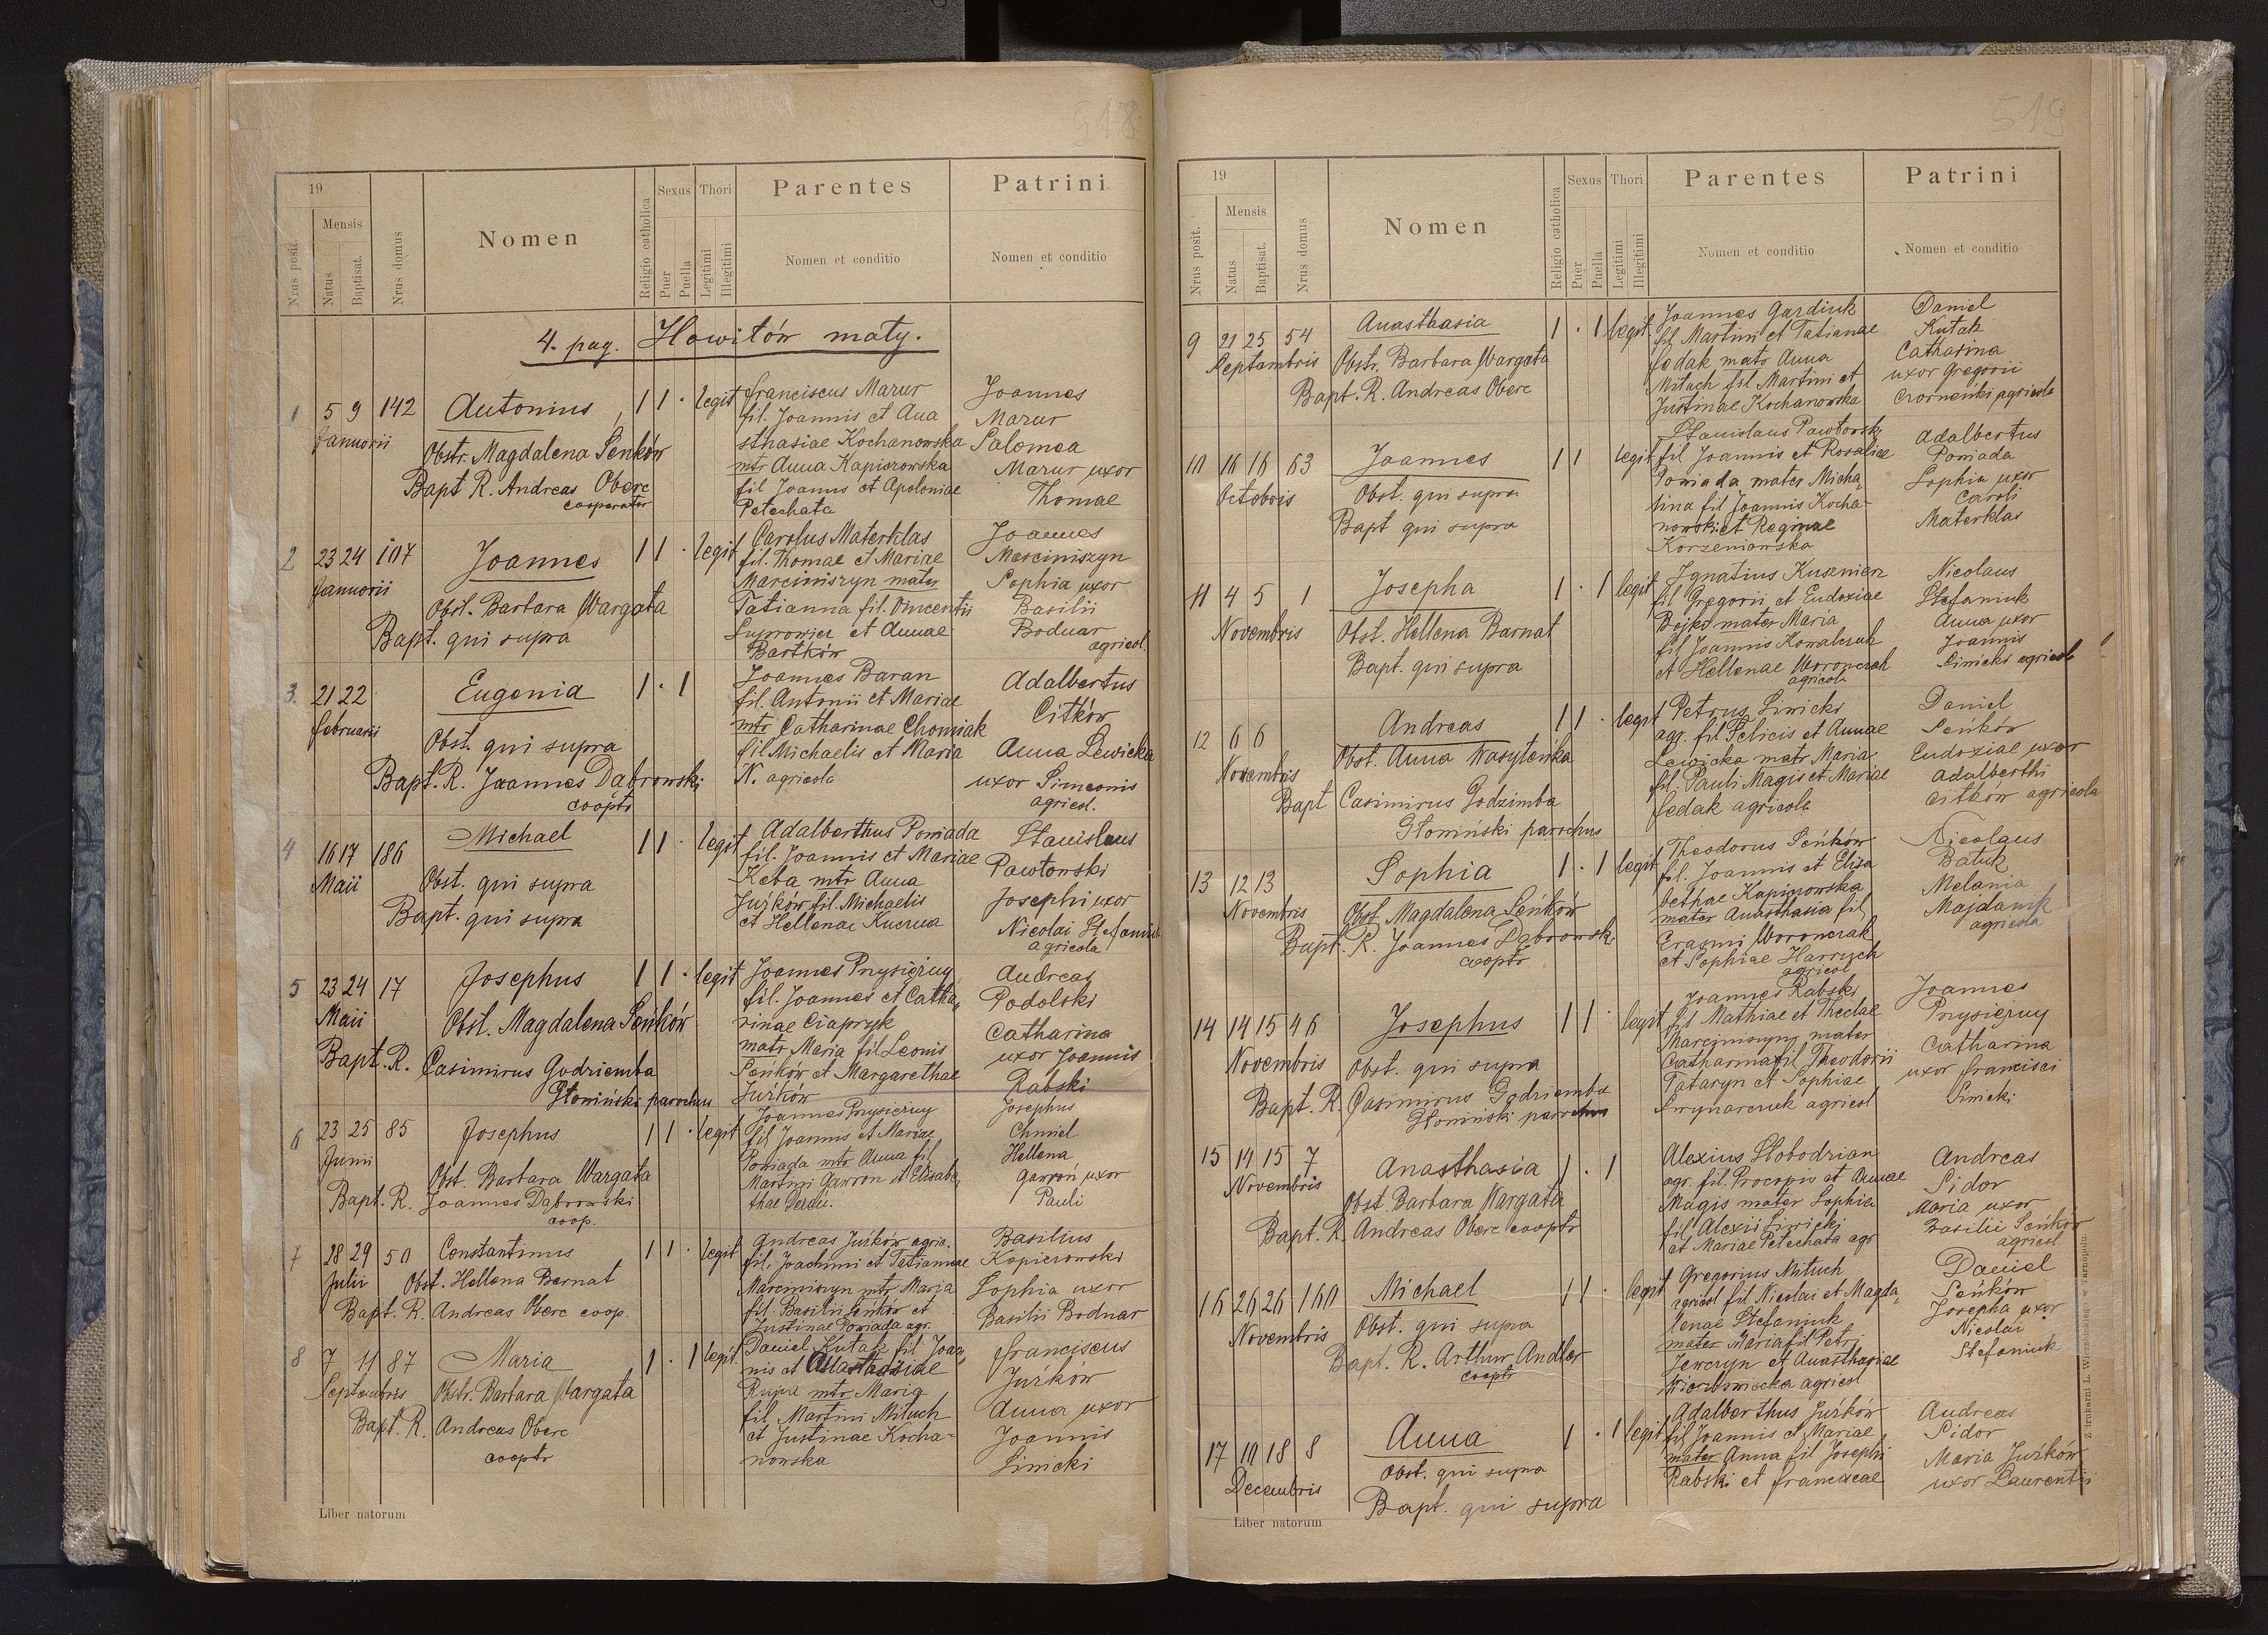 518
19
Mensis
Nrus posit.
Natus
Baptisat.
Nrus domus
Nomen
Religio catholica
Sexus
Puer
Puella
Thori
Legitimi
Illegitimi
Parentes
Nomen et conditio
Patrini
Nomen et conditio
4. pag. Howilów mały.
1 5 9 142 Antonius 1 1 . legit
Januarii
Obstr. Magdalena Seńków
Bapt R. Andreas Oberc
cooperator
Franciscus Mazur
fil. Joannis et Ana
sthasiae Kochanowska
mtr Anna Kapicrowska
fil Joannis et Apoloniae
Petechata
Joannes
Mazur
Salomea
Mazur uxor
Thomae
2 23 24 107 Joannes 1 1 . legit
Januarii
Obst. Barbara Wargata
Bapt. qui supra
Carolus Materklas
fil. Thomae et Mariae
Marciniszyn mater
Tatianna fil. Vincentii
et Annae
Bartków
Joannes
Marciniszyn
Sophia uxor
Basilii
Bodnar
agricol.
3. 21 22 Eugenia 1 . 1
Februarii
Obst. qui supra
Bapt. R. Joannes Dąbrowski
cooptr
Joannes Baran
fil. Antonii et Mariae
mtr Catharinae Chomiak
fil Michaelis et Maria
N. agricola
Adalbertus
Citków
Anna Lewicka
uxor Simeonis
agricol.
4 16 17 186 Michael 1 1 . legit
Maii
Obst. qui supra
Bapt. qui supra
Adalberthus Poniada
fil. Joannis et Mariae
Keba mtr Anna
Jurków fil. Michaelis
et Hellenae Kucrua
Stanislaus
Pawłowski
Josephi uxor
Nicolai Stefaniuk
agricola
5 23 24 17 Josephus 1 1 . legit
Maii
Obst. Magdalena Seńków
Bapt. R. Casimirus Godziemba
Głomiński parochus
Joannes Przysiężny
fil. Joannes et Catha„
rinae Ciapryk
matr Maria fil Leonis
Seńków et Margarethae
Jurków
Andreas
Podolski
Catharina
uxor Joannis
Rabski
6 23 25 85 Josephus 1 1 . legit
Junii
Obst. Barbara Wargata
Bapt. R. Joannes Dąbrowski
coop.
Joannes Przysiężny
fil Joannis et Mariae
Poniada mtr Anna fil
Martini Gawron et Elisabe„
thae
Josephus
Chmiel
Hellena
Gawron uxor
Pauli
7 28 29 50 Constantinus 1 1 . legit
Julii
Obst. Hellena Bernat
Bapt. R. Andreas Oberc coop.
Andreas Jurków agric.
fil. Joachimi et Tatiannae
Marciniszyn mtr Maria
fil. Basilii Seńków et
Justinae Poniada agr.
Basilius
Kopicrowski
Sophia uxor
Basilii Bodnar
8 7 11 87 Maria 1 . 1 legit.
Septembris
Obstr. Barbara Wargata
Bapt. R. Andreas Oberc
cooptr
Daniel Kutak fil Joan„
nis et Anastasiae
Rupa mtr Maria
fil. Martini Mituch
et Justinae Kocha-
nowska
Franciscus
Jurków
Anna uxor
Joannis
Linicki
Liber natorum
519
19
Mensis
Nrus posit.
Natus
Baptisat.
Nrus domus
Nomen
Religio catholica
Sexus
Puer
Puella
Thori
Legitimi
Illegitimi
Parentes
Nomen et conditio
Patrini
Nomen et conditio
9 21 25 54 Anasthasia 1 . 1 legit
Septembris
Obstr. Barbara Wargata
Bapt. R. Andreas Oberc
Joannes Gardiuk
fil Martini et Tatianae
Fedak matr Anna
Mituch fil Martini et
Justinae Kochanowska
Daniel
Kutak
Catharina
uxor Gregorii
agricola
10 16 16 63 Joannes 1 1 legit
Octobris
Obst. qui supra
Bapt qui supra
Stanislaus Pawłowski
fil Joannis et Rosaliae
Poniada mater Micha„
lina fil Joannis Kocha-
nowski et Reginae
Korzeniowska
Adalbertus
Poniada
Sophia uxor
Caroli
Materklas
11 4 5 1 Josepha 1 . 1 legit
Novembris
Obst. Hellena Barnat
Bapt. qui supra
Ignatius Kusznierz
fil Gregorii et Eudoxiae
Bojko mater Maria
fil Joannis Kowalczuk
et Hellenae Woronczak
agricola
Nicolaus
Stefaniuk
Anna uxor
Joannis
Linicki agricola
12 6 6 Andreas 1 1 . legit
Novembris
Obst. Anna Wasyleńka
Bapt Casimirus Godzimba
Głomiński parochus
Petrus Linicki
agr. fil Felicis et Annae
Lewicka matr Maria
fil. Pauli Magis et Mariae
Fedak agricola
Daniel
Seńków
Eudoxiae uxor
Adalberthi
Citków agricola
13 12 13 Sophia 1 . 1 legit
Novembris
Obst Magdalena Seńków
Bapt. R. Joannes Dąbrowski
cooptr
Theodorus Seńków
fil. Joannis et Elisa
bethae Kapicrowska
mater Anasthasia fil
Erazmi Woronczak
et Sophiae
agricol
Nicolaus
Batuk
Melania
Majdanik
agricola
14 14 15 46 Josephus 1 1 legit
Novembris
Obst. qui supra
Bapt. R. Casimirus Godziemba
Głomiński parochus
Joannes Rabski
fil Mathiae et Theclae
Marciniszyn mater
Catharina fil Theodorii
Tataryn et Sophiae
agricol
Joannes
Przysiężny
Catharina
uxor Francisci
Linicki
15 14 15 7 Anasthasia 1 . 1
Novembris
Obst. Barbara Wargata
Bapt. R. Andreas Oberc cooptr
Alexius Słobodzian
agr. fil. Procopii et Annae
Magis mater Sophia
fil Alexii Linicki
et Mariae Petechata agr
Andreas
Sidor
Maria uxor
Basilii Seńków
agricol
16 26 26 160 Michael 1 1 . legit
Novembris
Obst. qui supra
Bapt. R. Arthur Andler
cooptr
Gregorius Mituch
agricol fil Nicolai et Magda„
lenae Stefaniuk
mater Maria fil Petri
et Anasthasiae
agricol
Daniel
Seńków
Josepha uxor
Nicolai
Stefaniuk
17 10 18 8 Anna 1 . 1 legit
Decembris
Obst. qui supra
Bapt. qui supra
Adalberthus Jurków
fil Joannis et Mariae
mater Anna fil Josephi
Rabski et Franciscae
Andreas
Sidor
Maria Jurków
uxor Laurentii
Liber natorum
Z drukarni L. Wierzbickiego w Tarnopolu.